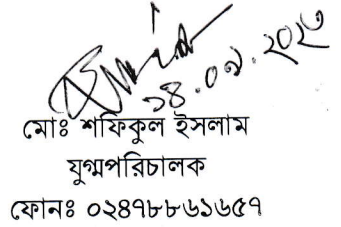 ১৪.০৯.২০২৩
মোঃ শফিকুল ইসলাম
যুগ্মপরিচালক
ফোনঃ ০২৪৭৮৮৬১৬৫৭